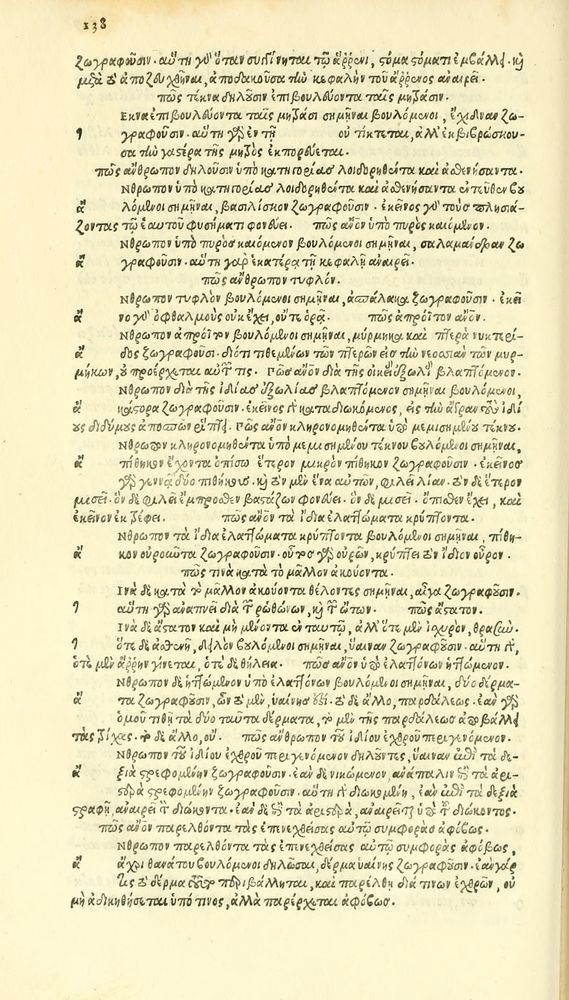 138
ζωγραφοῦσιν· αὕτη γὰρ ὅταν συγγίνηται τῷ ἄρρενι, στόμα στόματι ἐμβάλλει· καὶ
μετὰ τὸ ἀποζευχθῆναι, ἀποδακοῦσα τὴν κεφαλὴν τοῦ ἄρρενος ἀναιρεῖ.
πῶς τέκνα δηλοῦσιν ἐπιβουλεύοντα ταῖς μητράσιν.
Εκνα ἐπιβουλεύοντα ταῖς μητράσι σημῆναι βουλόμενοι, ἔχιδναν ζω-
τ γραφοῦσιν· αὕτη γὰρ ἐν τῇ οὐ τίκτεται, ἀλλ' ἐκβιβρώσκου-
σα τὴν γαστέρα τῆς μητρὸς ἐκπορεύεται.
πῶς ἄνθρωπον δηλοῦσιν ὑπὸ κατηγορίας λοιδορηθέντα καὶ ἀσθενήσαντα.
Νθρωπον ὑπὸ κατηγορίας λοιδορηθέντα καὶ ἀσθενήσαντα ἐντεῦθεν βου
ἄ λόμενοι σημῆναι, βασιλίσκον ζωγραφοῦσιν· ἐκεῖνος γὰρ τοὺς πλησιά-
ζοντας τῷ ἑαυτοῦ φυσήματι φονεύει. πῶς ἄνθρωπον ὑπὸ πυρὸς καιόμενον.
Νθρωπον ὑπὸ πυρὸς καιόμενον βουλόμενοι σημῆναι, σαλαμάνδραν ζω
ἄ γραφοῦσιν· αὕτη γὰρ ἑκατέρᾳ τῇ κεφαλῇ ἀναιρεῖ.
πῶς ἄνθρωπον τυφλόν.
Νθρωπον τυφλὸν βουλόμενοι σημῆναι, ἀσπάλακα ζωγραφοῦσιν· ἐκεῖ
ἄ νο γὰρ ὀφθαλμοὺς οὐκ ἔχει, οὔτε ὁρᾷ. πῶς ἀπρόϊτον ἄνθρωπον.
Νθρωπον ἀπρόϊτον βουλόμενοι σημῆναι, μύρμηκα καὶ πτερὰ νυκτερί-
ἄ δος ζωγραφοῦσι· διότι τιθεμένων τῶν πτερῶν εἰς τὴν νεοσσιὰν τῶν μυρ-
μήκων, οὐ προέρχεται αὐτῶν τις. Πῶς ἄνθρωπον διὰ τῆς οἰκείας ἐξωλείας βλαπτόμενον.
Νθρωπον διὰ τῆς ἰδίας ἐξωλείας βλαπτόμενον σημῆναι βουλόμενοι,
ἄ κάστορα ζωγραφοῦσιν· ἐκεῖνος γὰρ καταδιωκόμενος, εἰς τὴν ἄγραν τοὺς ἰδί
ους διδύμους ἀποσπῶν ῥίπτει. Πῶς ἄνθρωπον κληρονομηθέντα ὑπὸ μεμισημένου τέκνου.
Νθρωπον κληρονομηθέντα ὑπὸ μεμισημένου τέκνου βουλόμενοι σημῆναι,
ἄ πίθηκον ἔχοντα ὀπίσω ἕτερον μικρὸν πίθηκον ζωγραφοῦσιν· ἐκεῖνος
γὰρ γεννᾷ δύο πιθήκους· καὶ τὸν μὲν ἕνα αὐτῶν, φιλεῖ λίαν· τὸν δὲ ἕτερον
μισεῖ· ὃν δὲ φιλεῖ ἔμπροσθεν βαστάζων φονεύει· ὃν δὲ μισεῖ· ὄπισθεν ἔχει, καὶ
ἐκεῖνον ἐκτρέφει. πῶς ἄνθρωπον τὰ ἴδια ἐλαττώματα κρύπτοντα.
Νθρωπον τὰ ἴδια ἐλαττώματα κρύπτοντα βουλόμενοι σημῆναι, πίθη-
ἄ κον οὐροῦντα ζωγραφοῦσιν· οὗτος γὰρ οὐρῶν, κρύπτει τὸν ἴδιον οὖρον.
πῶς τινὰ κατὰ τὸ μᾶλλον ἀκούοντα.
Ινὰ δὲ κατὰ τὸ μᾶλλον ἀκούοντα θέλοντες σημῆναι, αἶγα ζωγραφοῦσιν·
τ αὕτη γὰρ ἀναπνεῖ διὰ τῶν ῥωθώνων, καὶ τῶν ὤτων. πῶς ἄστατον.
Ινὰ δὲ ἄστατον καὶ μὴ μένοντα ἐν ταυτῷ, ἀλλ' ὅτε μὲν ἰσχυρὸν, θρασὺν·
τ ὅτε δὲ ἀσθενῆ, δηλοῦν βουλόμενοι σημῆναι, ὕαιναν ζωγραφοῦσιν· αὕτη γὰρ,
ὁτὲ μὲν ἄρρην γίνεται, ὁτὲ δὲ θήλεια. πῶς ἄνθρωπον ὑπὸ ἐλαττόνων ἡττώμενον.
Νθρωπον δὲ ἡττώμενον ὑπὸ ἐλαττόνων βουλόμενοι σημῆναι, δύο δέρμα-
ἄ τα ζωγραφοῦσιν, ὧν τὸ μὲν, ὑαίνης ἐστί· τὸ δὲ ἄλλο, παρδάλεως· ἐὰν γὰρ
ὁμοῦ τιθῇ τὰ δύο ταῦτα δέρματα, τὸ μὲν τῆς παρδάλεως ἀποβάλλει
τὰς τρίχας· τὸ δὲ ἄλλο, οὔ. πῶς ἄνθρωπον τοῦ ἰδίου ἐχθροῦ περιγενόμενον.
Νθρωπον τοῦ ἰδίου ἐχθροῦ περιγενόμενον δηλοῦντες, ὕαιναν ἐπὶ τὰ δε-
ἄ ξιὰ στρεφομένην ζωγραφοῦσιν· ἐὰν δὲ νικώμενον, ἀνάπαλιν ἐπὶ τὰ ἀρι-
στερὰ στρεφομένην ζωγραφοῦσιν· αὕτη γὰρ διωκομένη, ἐὰν ἐπὶ τὰ δεξιὰ
στραφῇ, ἀναιρεῖ τὸν διώκοντα· ἐὰν δὲ ἐπὶ τὰ ἀριστερὰ, ἀναιρεῖται ὑπὸ τοῦ διώκοντος.
πῶς ἄνθρωπον παρελθόντα τὰς ἐπενεχθείσας αὐτῷ συμφορὰς ἀφόβως.
Νθρωπον παρελθόντα τὰς ἐπενεχθείσας αὐτῷ συμφορὰς ἀφόβως,
ἄ ἄχρι θανάτου βουλόμενοι δηλῶσαι, δέρμα ὑαίνης ζωγραφοῦσιν· ἐὰν γάρ
τις τὸ δέρμα τοῦτο περιβάληται, καὶ παρέλθῃ διά τινων ἐχθρῶν, οὐ
μὴ ἀδικηθήσεται ὑπό τινος, ἀλλὰ παρέρχεται ἀφόβως.